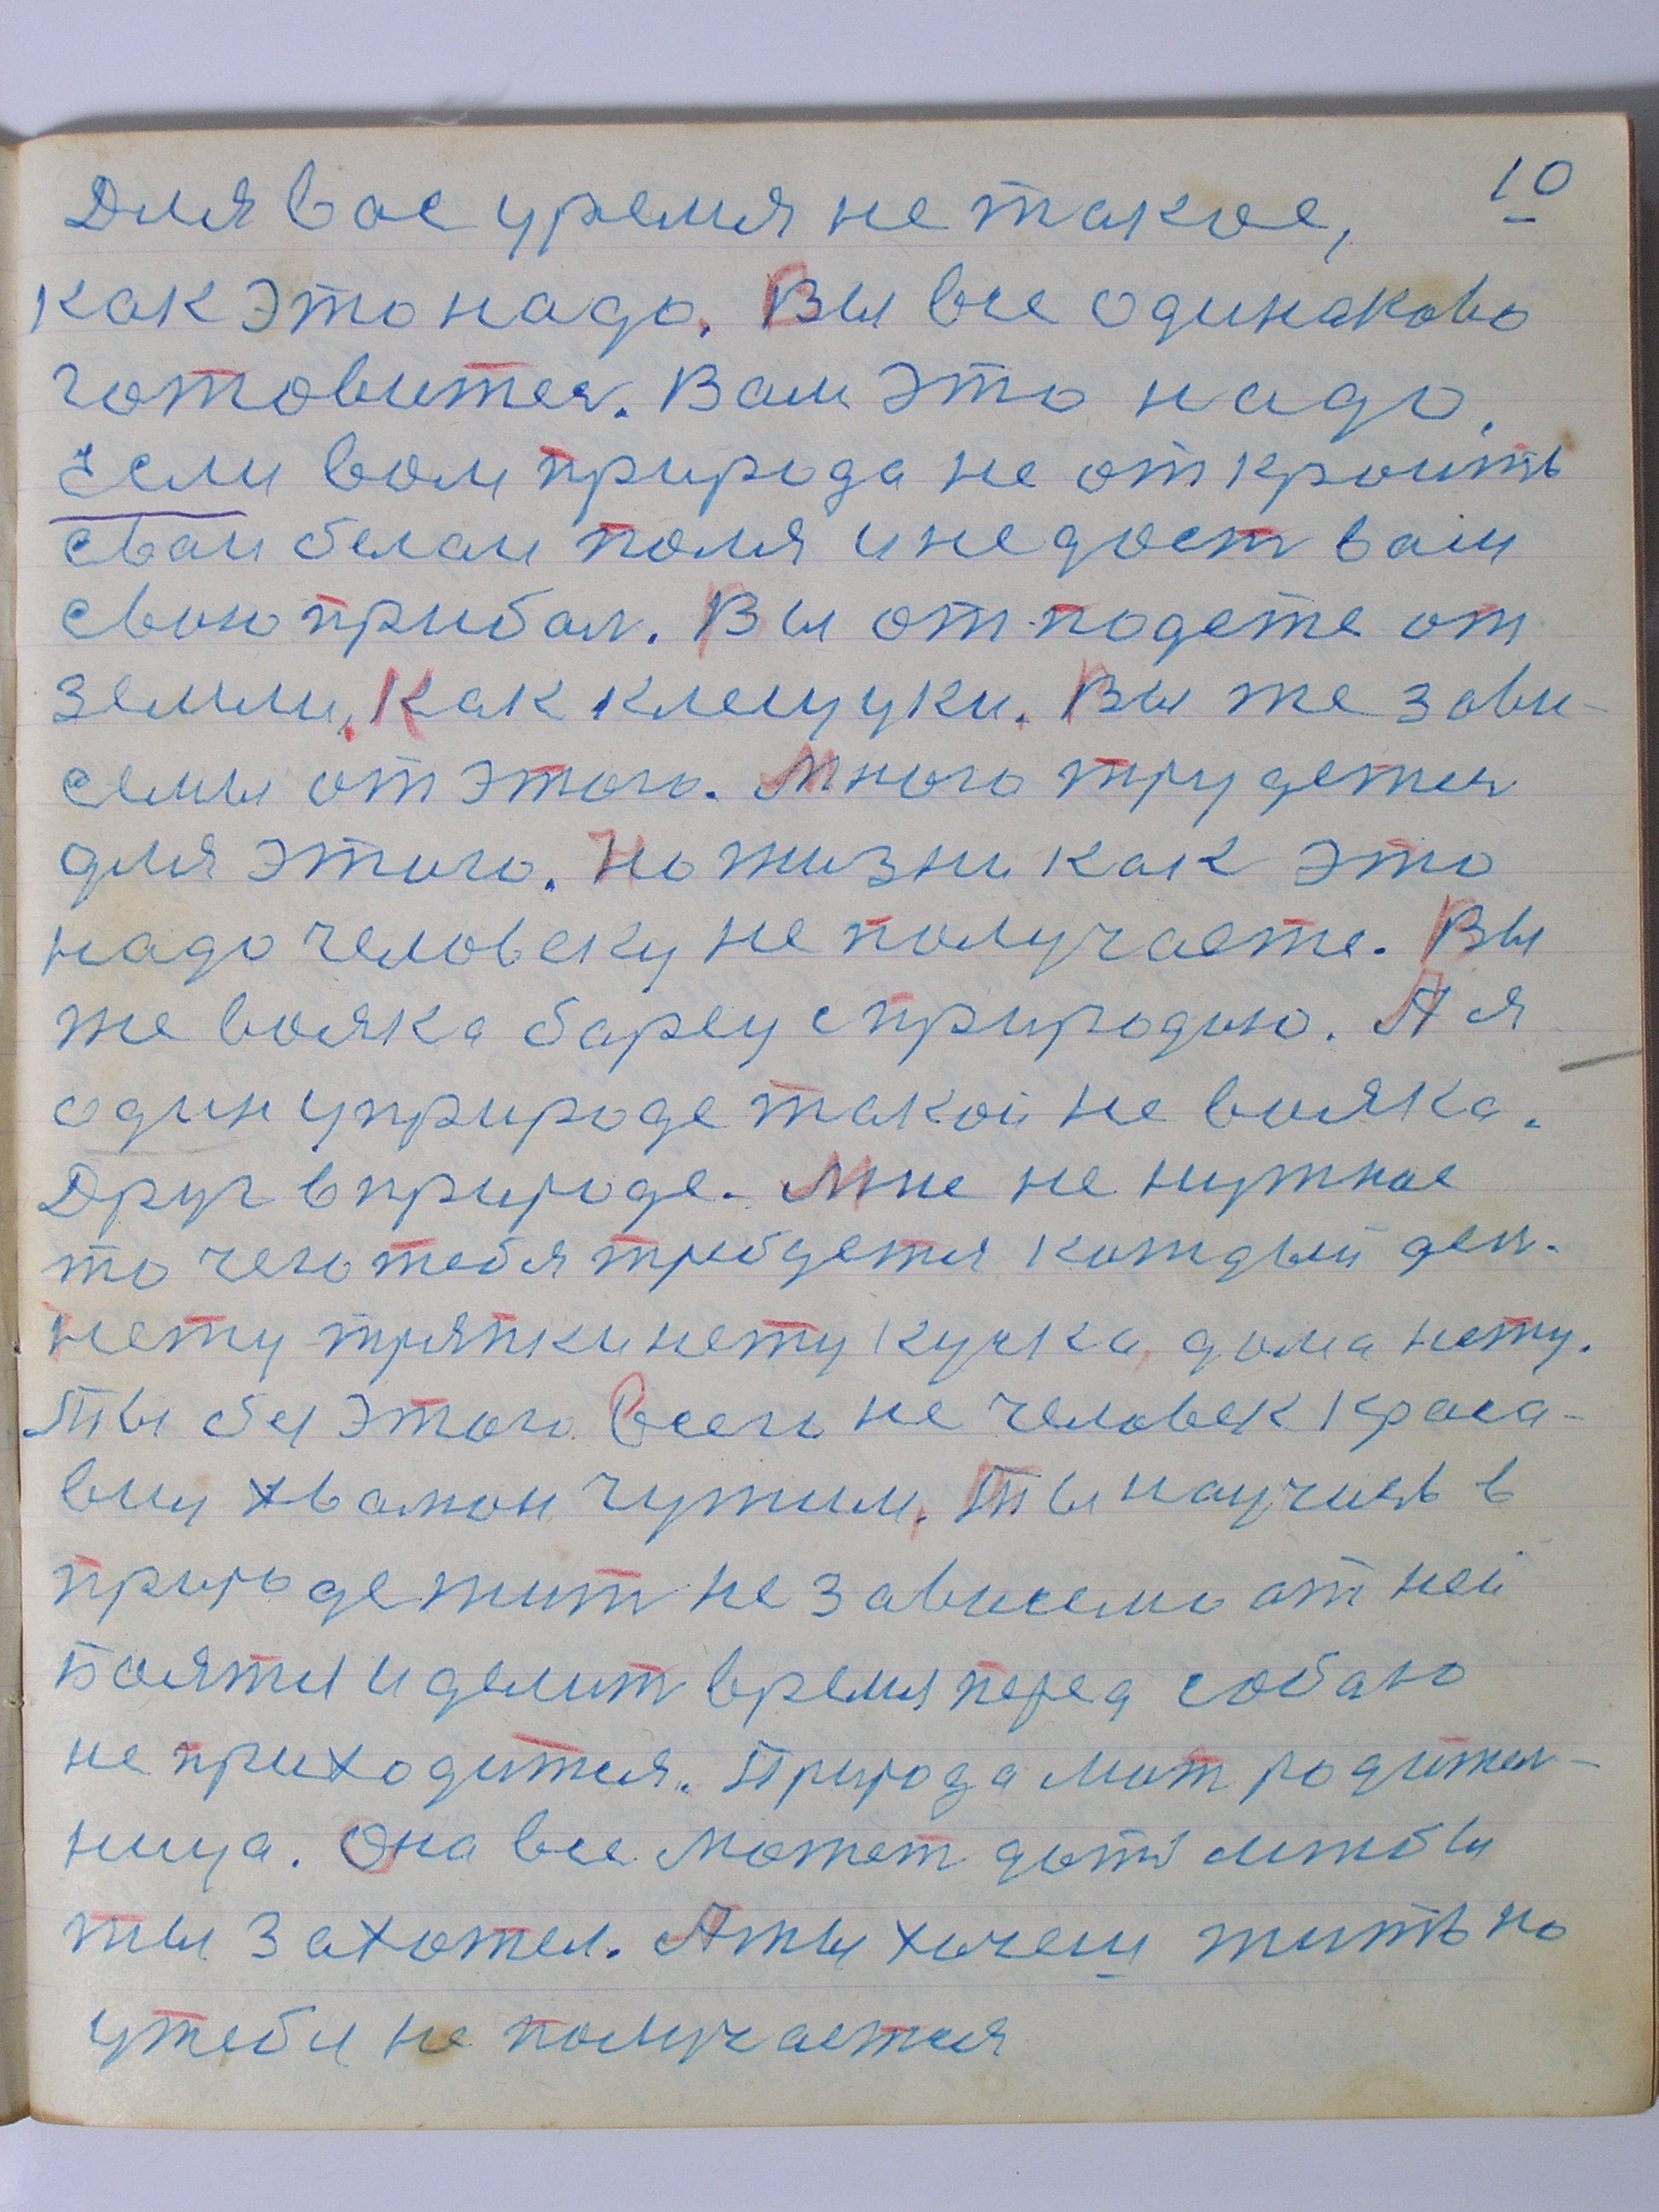 10
Для вас уремя не такое,
как это надо. Вы все одинаково
готовитея. Вам это надо.
Если вам природа не откроить
сваи белаи поля и не дост вам
свою прибал. Вы отподете от
земли, Как клещуки. Вы же зави-
семы от этого. Много трудетея
для этого. Но жизни как это
надо человеку не получаете. Вы
же вояка барец с природою. А я
один у природе такой не вояка.
Друг в природе. Мне не нужное
то чего тебя требдетя каждый ден.
нету тряпки нету кучка, дома нету.
Ты бы этого всего не человек краса-
виц хвамон чужим. Ты научись в
природе жит не зависемо от ней
Боятья и делит время перед собаю
не приходится. Природа мат родител-
ница. Она все может дать лиж бы
ты захотел. А ты хочеш жить но
у тебя не получается